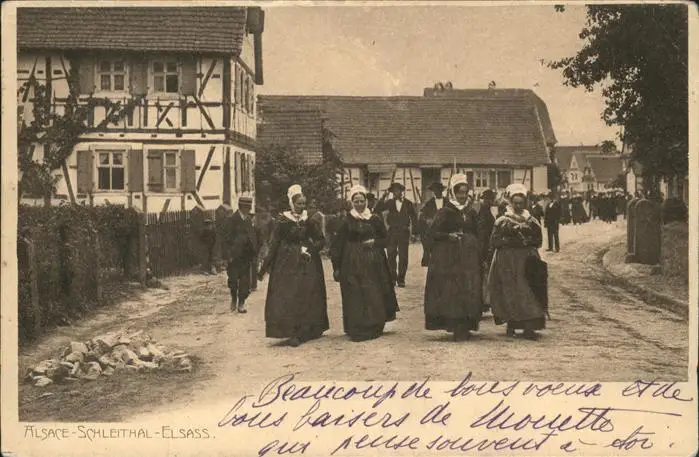 Beaucoup de bons voeux et de
bons baisers de Mouette
qui pense souvent à toi.
ALSACE-SCHLEITHAL-ELSASS.